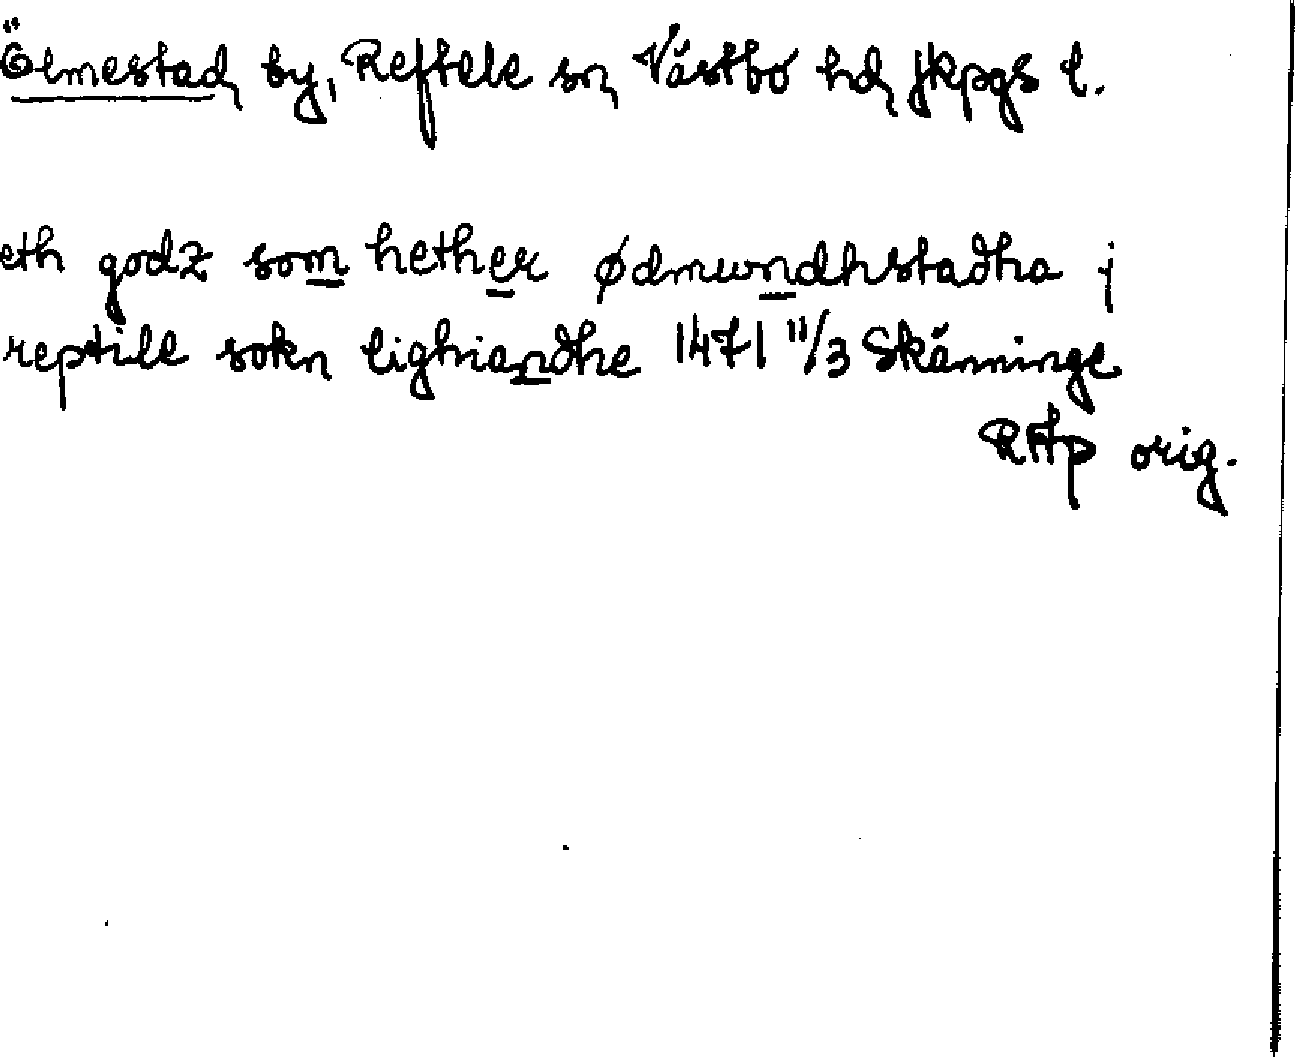 Ölmestad by, Reftele sn Västbo hd Jkpgs l.
eth godz som hether ødmundhstadha j
reptill sokn lighiandhe 1471 11/3 Skänninge
RAp orig.